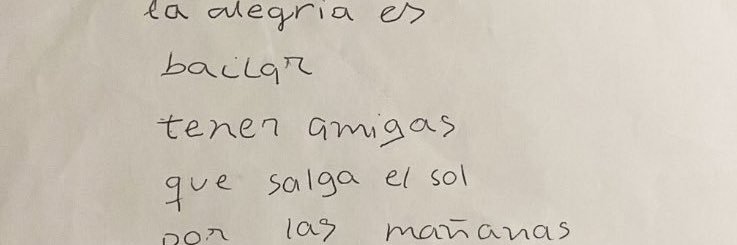 la alegria es
bailar
tener amigas
que salga el sol
por las mañanas